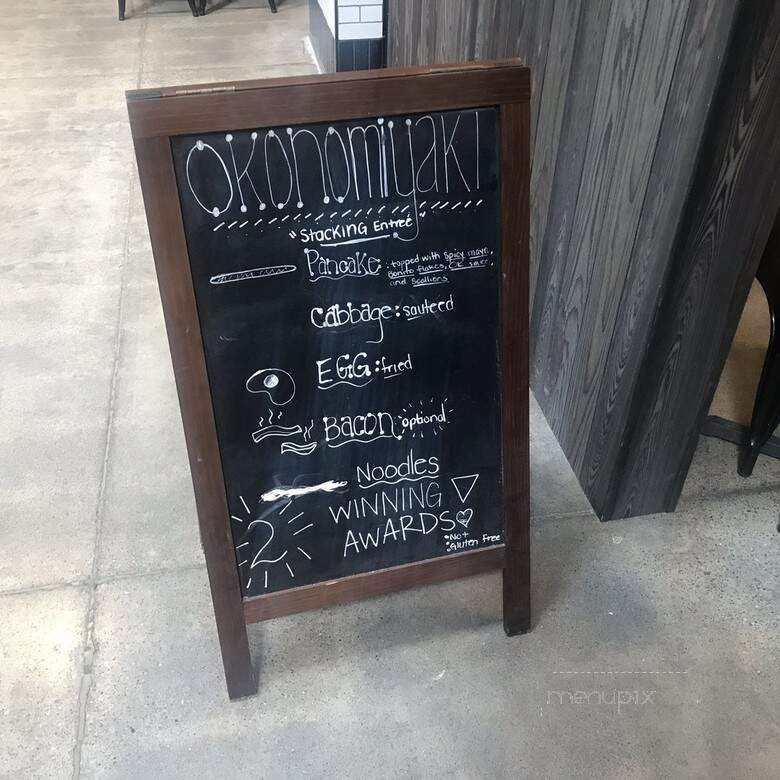 OKONOMIYAKI
"Stacking Entree"
Pancake: topped with spicy mayo,
Bonito flakes,
and Scallions
Cabbage: sauteed
EGG: fried
Bacon optional
Noodles
2 WINNING
AWARDS
*Not
*Gluten Free
menupix